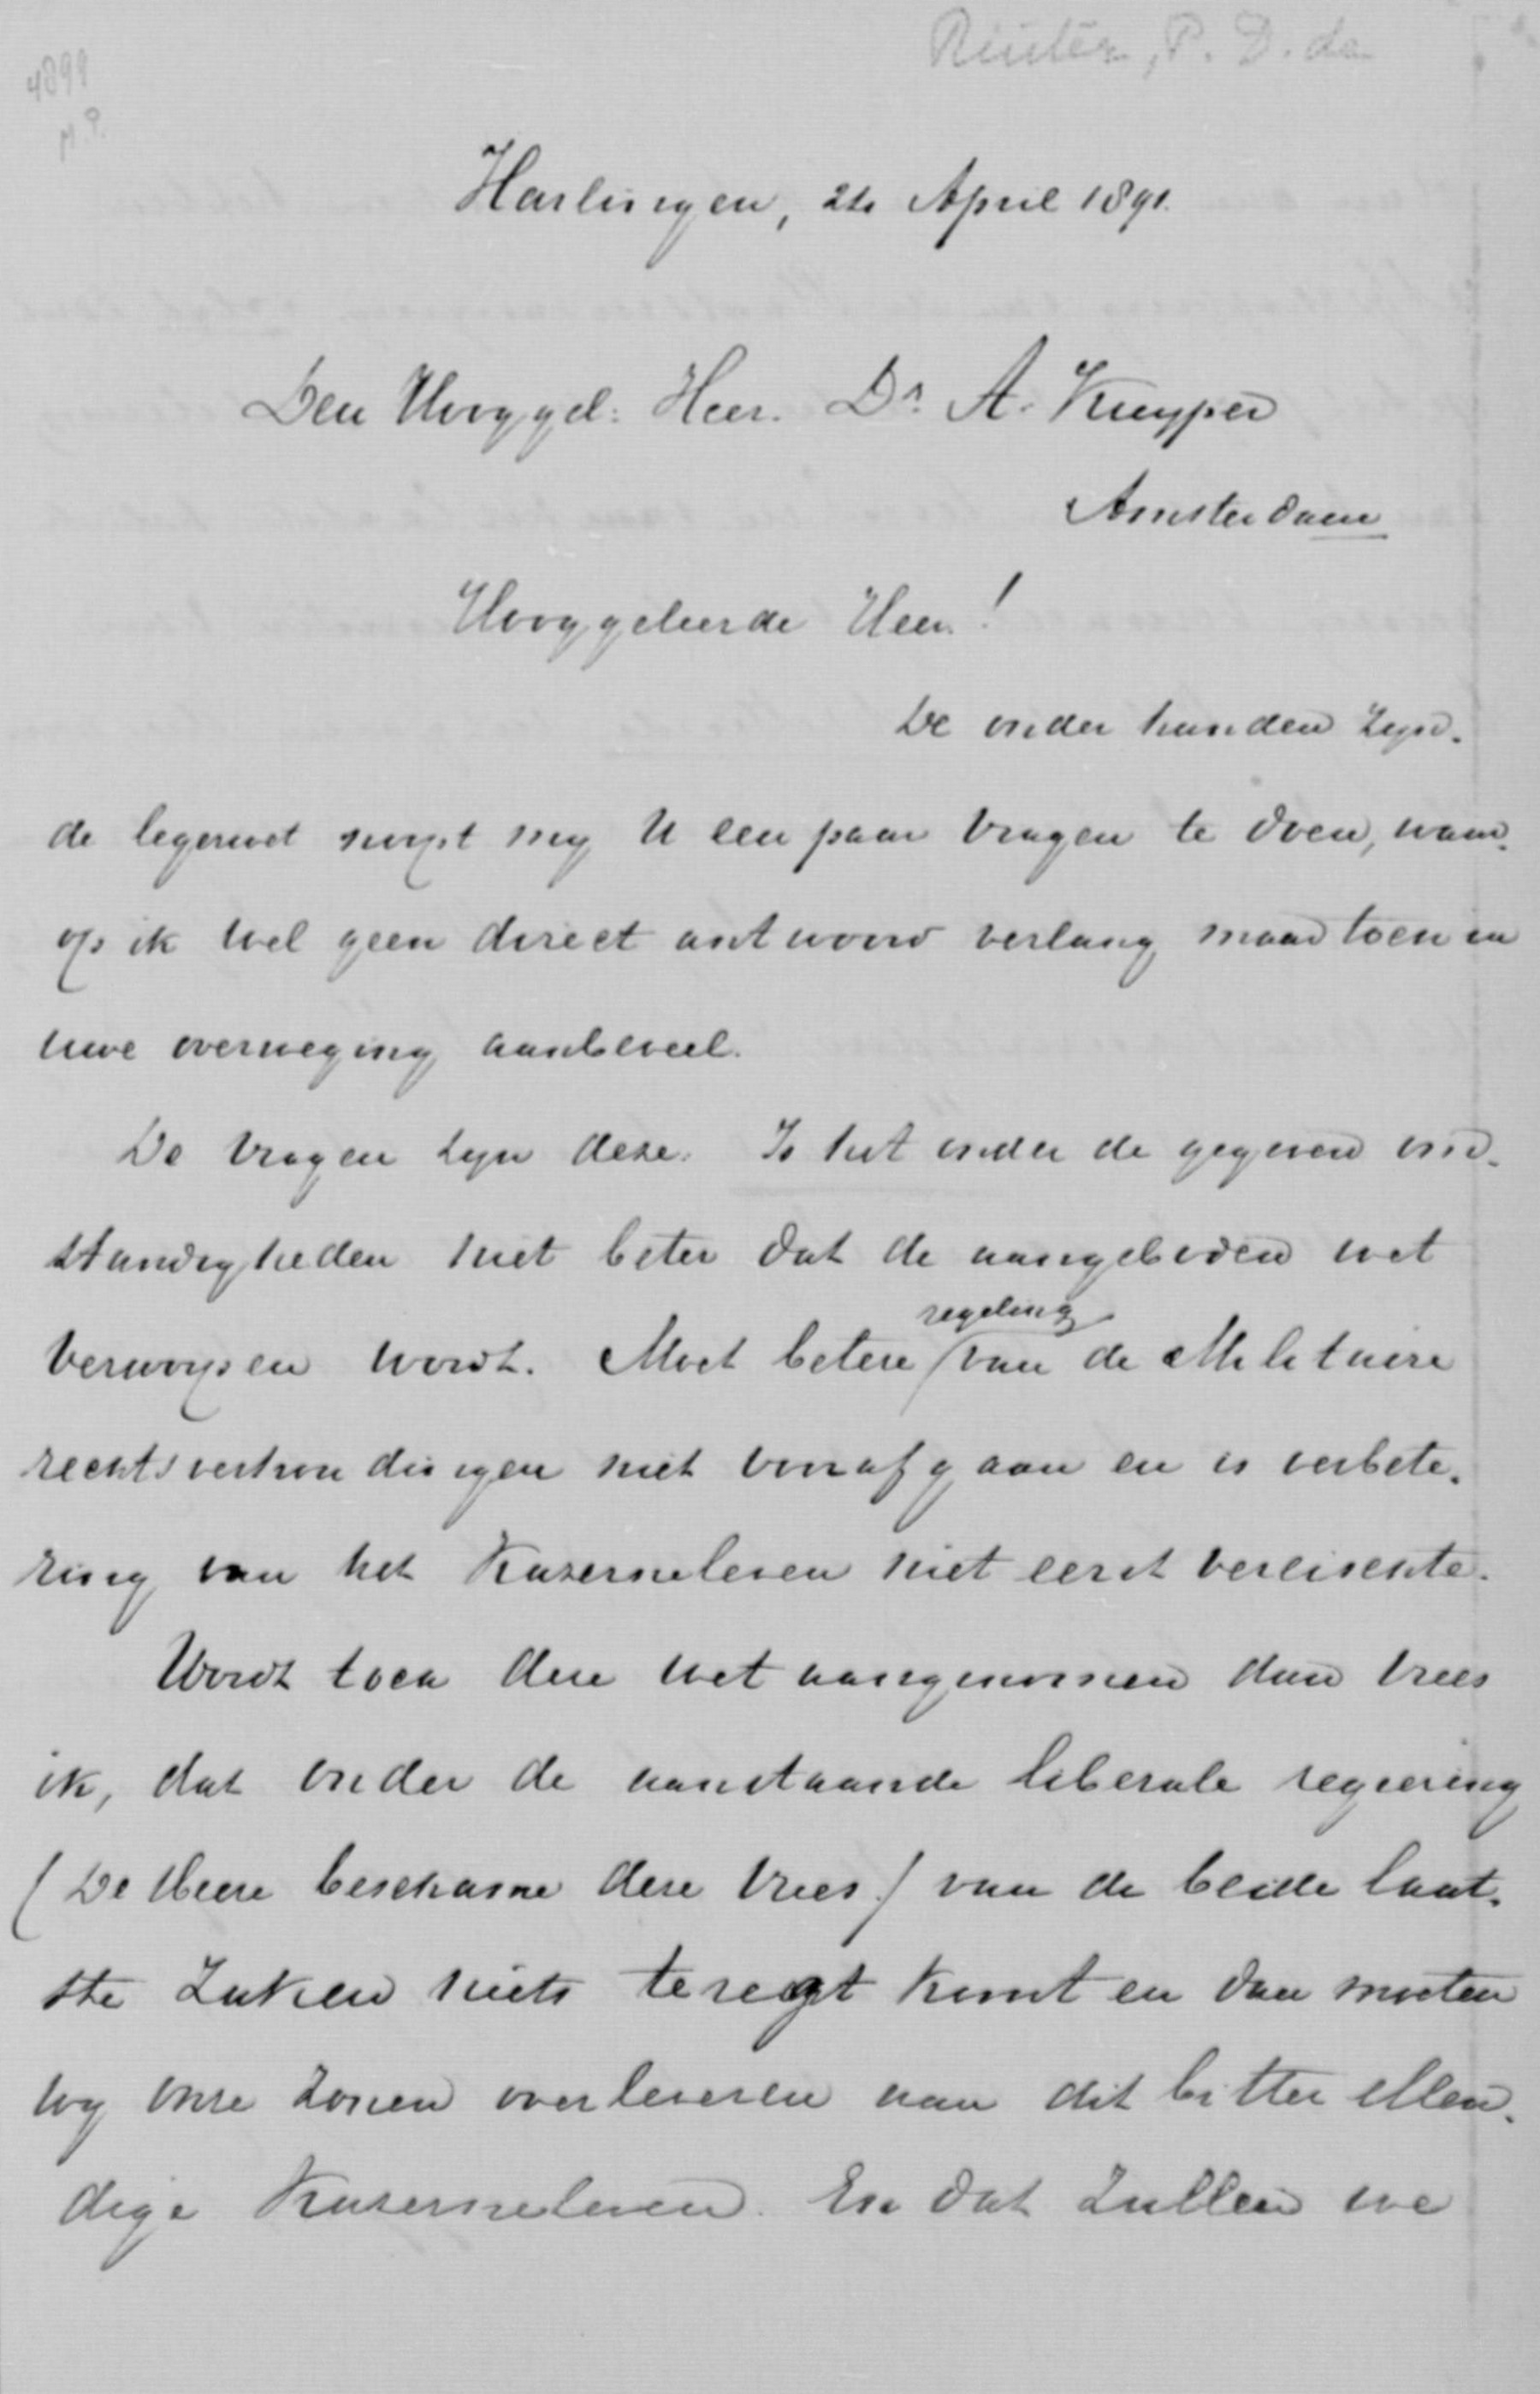 Ruiter, P. D. de
4899
Harlingen, 21 April 1891.
Den Hooggel: Heer. Dr. A. Kuyper
Amsterdam
Hooggeleerde Heer!
De onder handen zijn-
de legerwet noopt mij U een paar vragen te doen, waar-
op ik wel geen direct antwoord verlang maar toch in
uwe overweging aanbeveel.
De vragen zijn deze. Is het onder de gegeven om-
standigheden niet beter dat de aangeboden wet
verworpen wordt. Moet betere regeling van de Militaire
rechtsverhoudingen niet vooraf gaan en is verbete-
ring van het Kazerneleven niet eerst vereischte.
Wordt toch deze wet aangenomen dan vrees
ik, dat onder de aanstaande liberale regeering
(De Heere beschame deze vrees) van de beide laat-
ste zaken niets teregt komt en dan moeten
wij onze zonen overleveren aan dit bitter ellen-
dige Kazerneleven. En dat zullen we